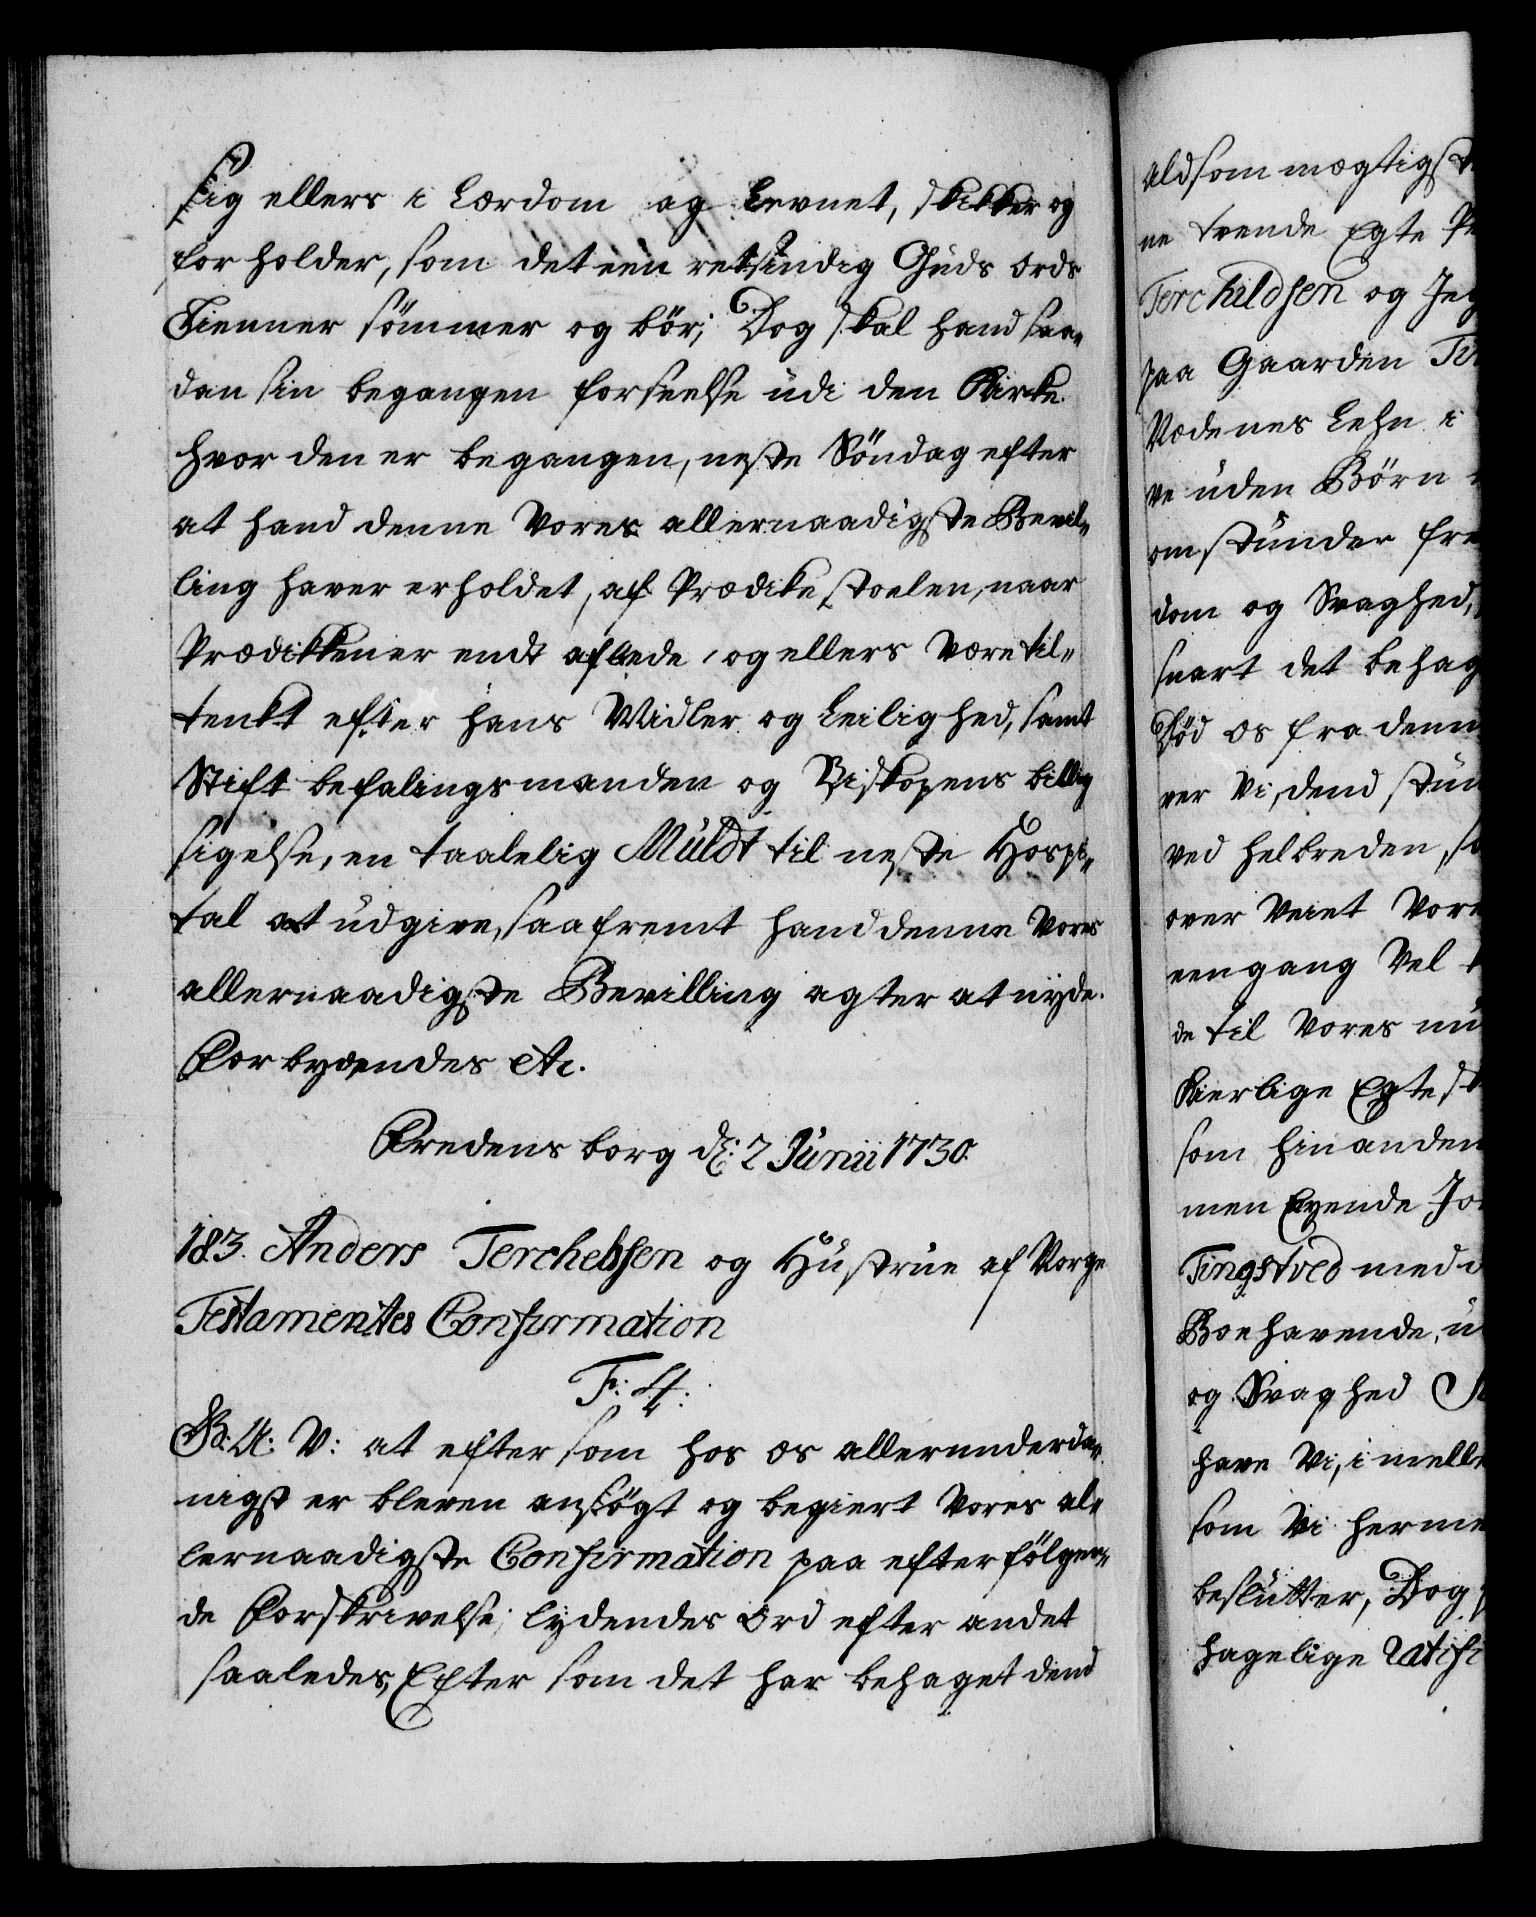 sig ellers i Lærdom og Levnet, skikker og
forholder, som det een retsindig Guds ords
Tienner sömmer og bör; Dog skal hand saa-
dan sin begangen forseelse udi den Kirke
hvor den er begangen, neste Söndag efter
at hand denne Vores allernaadigste Bevil-
ling haver erholdet, af Prædikestoelen, naar
Prædikken er endt aflede, og ellers være til-
tenkt efter hans Midler og Leilighed, samt
Stiftbefalingsmanden og Biskopens billig
sigelse, en taalelig Muldt til neste Hospi-
tal at udgive, saafremt hand denne Vores
allernaadigste Bevilling agter at nyde.
Forbydendes etc.
Fredensborg d: 2 Junii 1730.
183. Anders Terchelsen og Hustrue af Norge
Testamentes Confirmation
F: 4.
G. A: V: at eftersom hos os allerunderda-
nigst er bleven ansögt og begiert Vores al-
lernaadigste Confirmation paa efterfölgen-
de Forskrivelse, lydendes ord efter andet
saaledes, Efter som det har behaget dend
aldsommægtigst
ne tvende Egte
Terchildsen og
paa Gaarden
Rodenes Lehn i
ve uden Börn
omstunder
dom og Svaghed,
snart det behag
död os fra denn
ver Vi, dend stun
ved helbreden,
over veiet Vore
eengang vel
de til Vores
Kierlige Egtesk
som hinanden
men Eyende
Tingstved med
Boehavende, u
og Svaghed
have Vi, i melle
som Vi herme
beslutter, Dog
hagelige ratifi